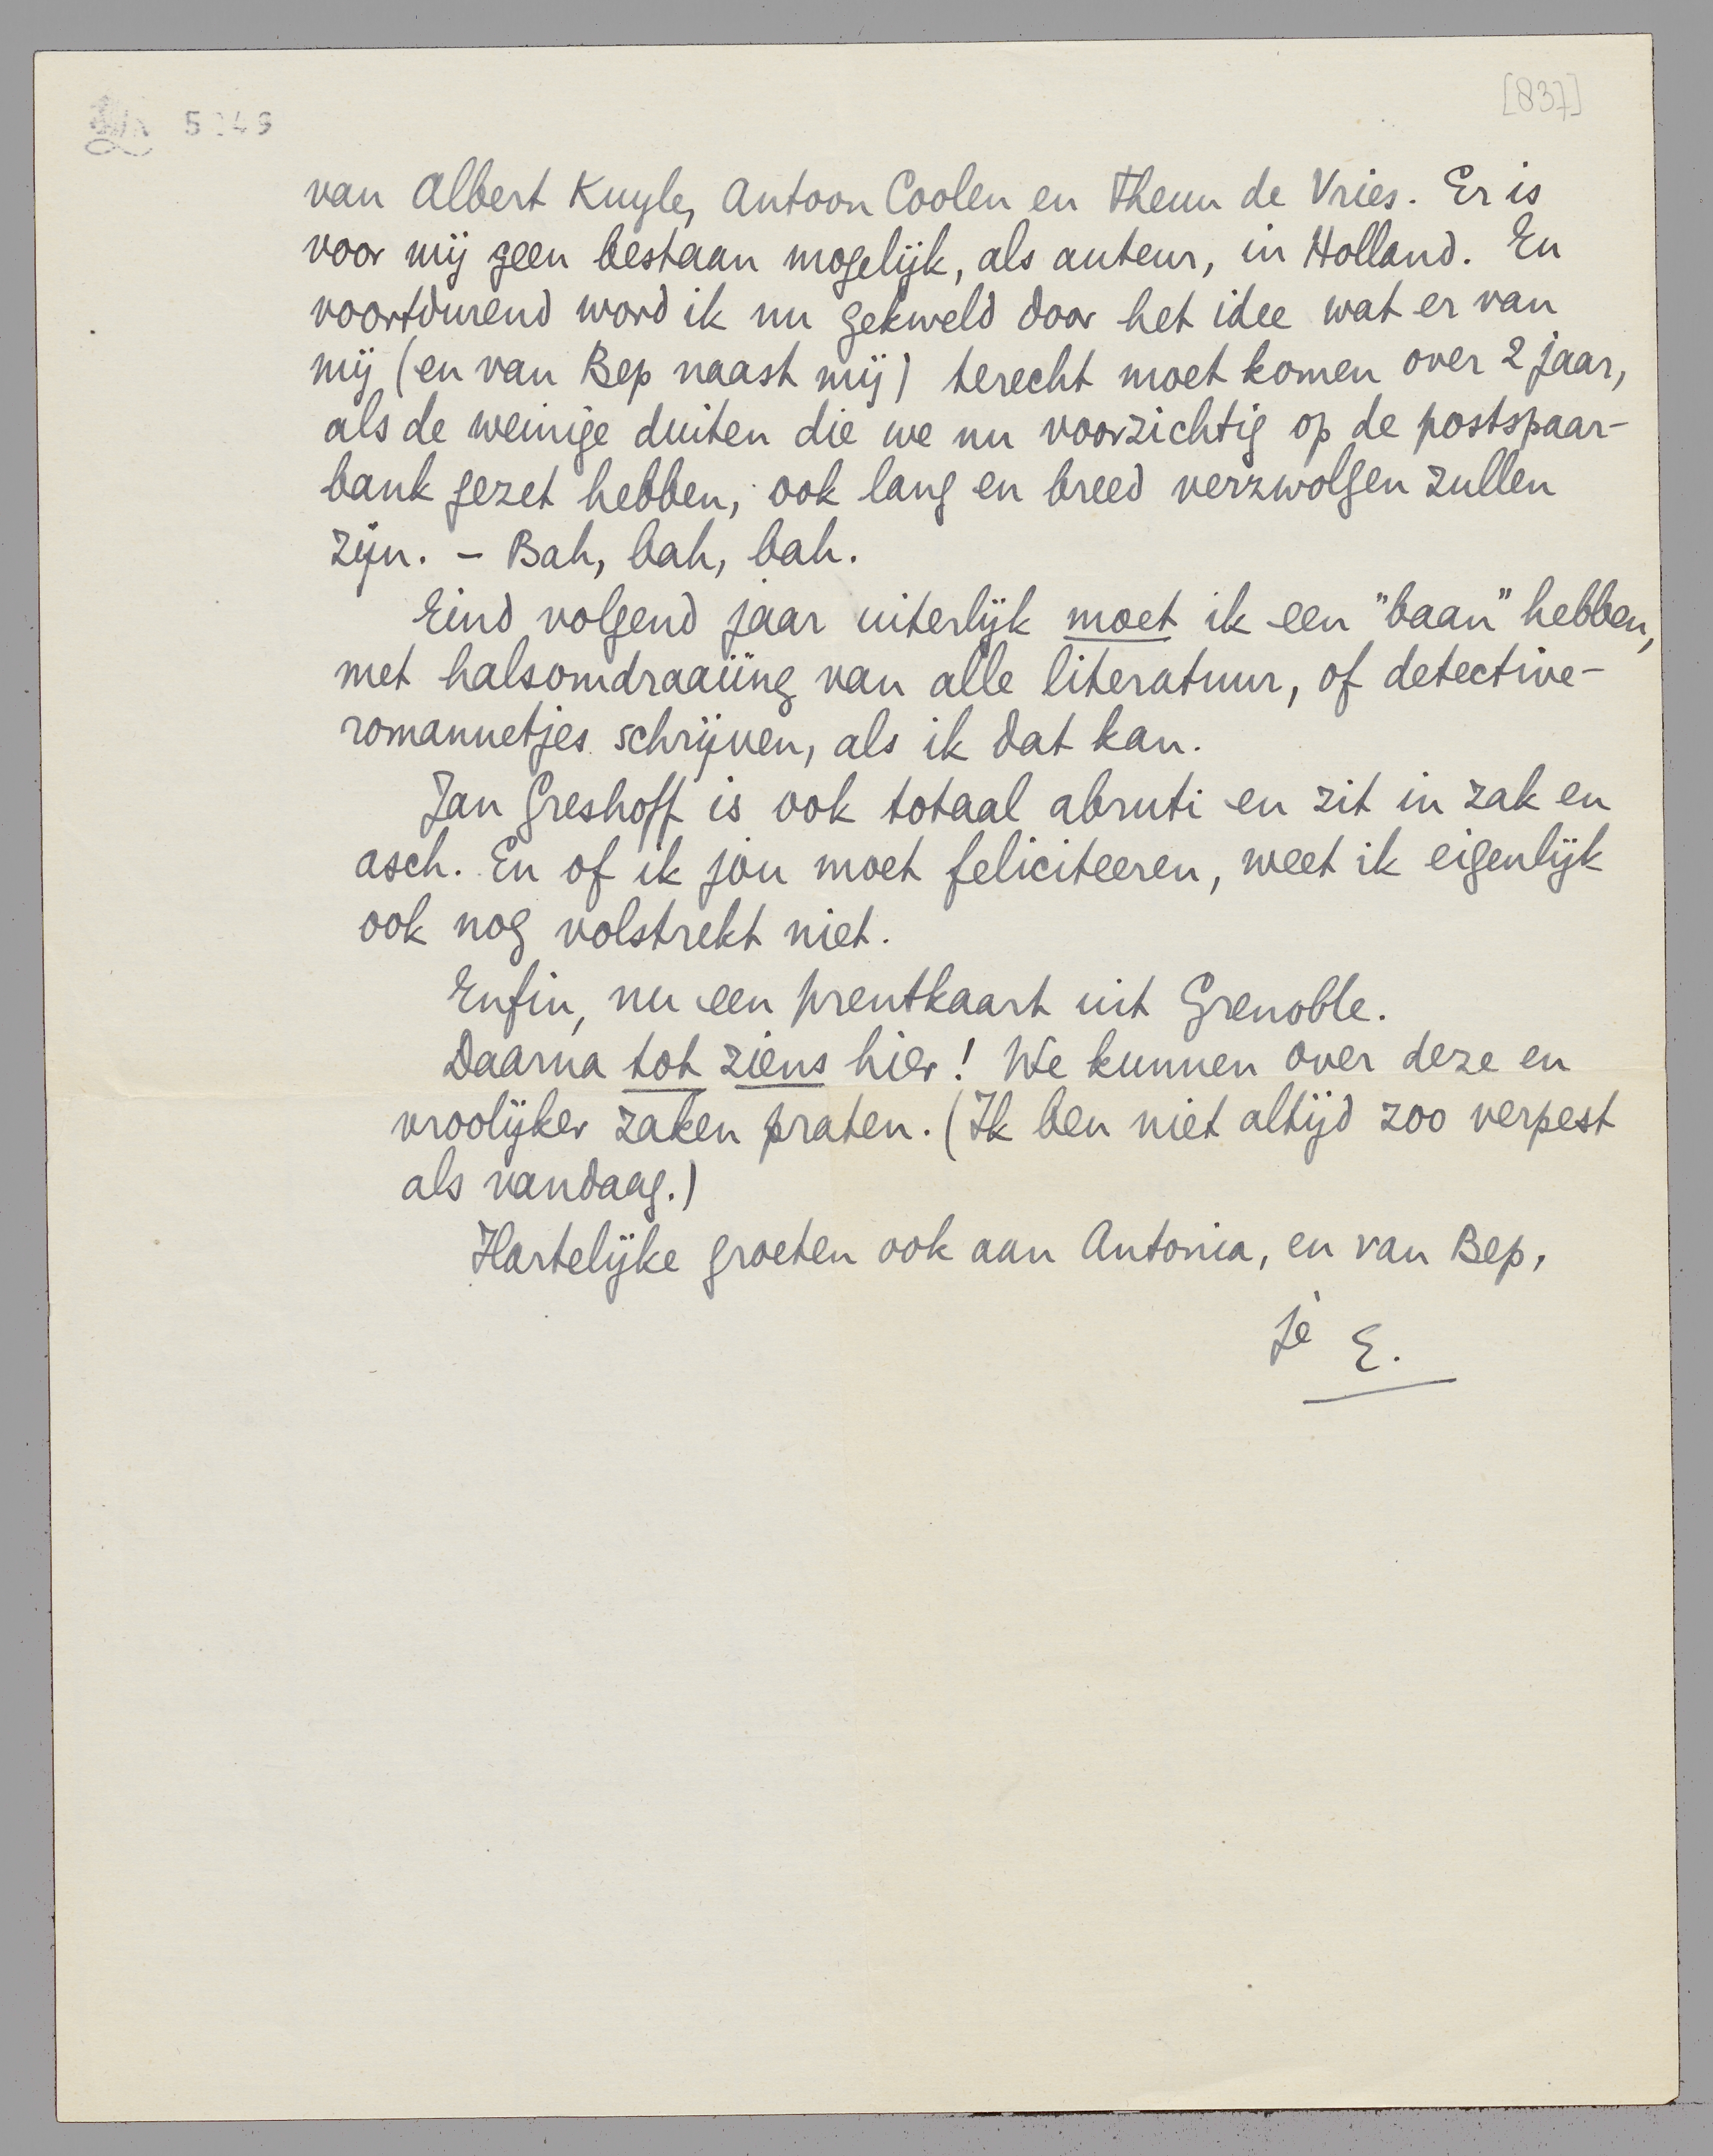 [837]
van Albert Kuyle, Antoon Coolen en Theun de Vries. Er is
voor mij geen bestaan mogelijk, als auteur, in Holland. En
voortdurend word ik nu gekweld door het idee wat er van
mij (en van Bep naast mij) terecht moet komen over 2 jaar,
als de weinige duiten die we nu voorzichtig op de postspaar-
bank gezet hebben, ook lang en breed verzwolgen zullen
zijn. – Bah, bah, bah.
Eind volgend jaar uiterlijk moet ik een "baan" hebben,
met halsomdraaiïng van alle literatuur, of detective-
romannetjes schrijven, als ik dat kan.
Jan Greshoff is ook totaal abruti en zit in zak en
asch. En of ik jou moet feliciteeren, weet ik eigenlijk
ook nog volstrekt niet.
Enfin, nu een prentkaart uit Grenoble.
Daarna tot ziens hier! We kunnen over deze en
vroolijker zaken praten. (Ik ben niet altijd zoo verpest
als vandaag.)
Hartelijke groeten ook aan Antonia, en van Bep,
je E.